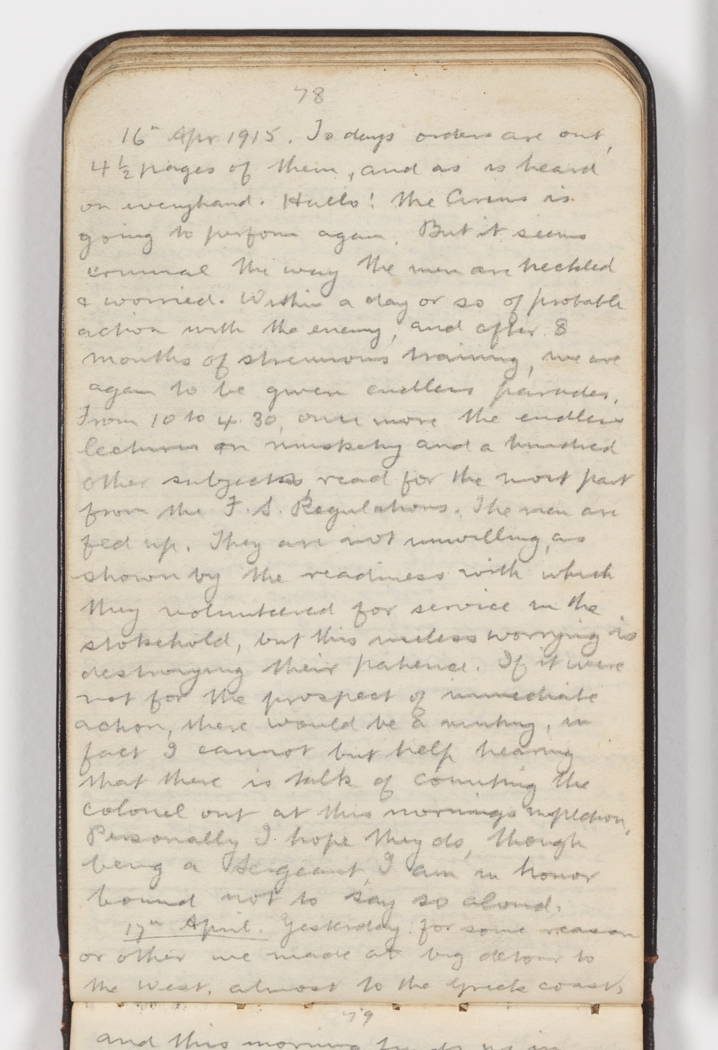 78
16th Apr 1915. Todays orders are out,
4½ pages of them, and as is heard
on everyhand. Hullo! the Circus is
going to perform again. But it seems
criminal the way the men are heckled
& worried. Within a day or so of probable
action with the enemy, and after 8
months of strenuous training, we are
again to be given endless parades.
From 10 to 4.30, once more the endless
lectures on musketry and a hundred
other subjects read for the most part
from the F.S. Regulations. The men are
fed up. They are not unwilling, as
shown by the readiness with which
they volunteered for service in the
stokehold, but this useless worrying is
destroying their patience. If it were
not for the prospect of immediate
action, there would be a mutiny, in
fact I cannot but help hearing
that there is talk of counting the
colonel out at this mornings inspection,
Personally I hope they do, though
being a Sergeant, I am in honor
bound not to say so aloud.
17th April. Yesterday for some reason
or other we made a big detour to
the West, almost to the Greek coast,
79
and this morning finds us in